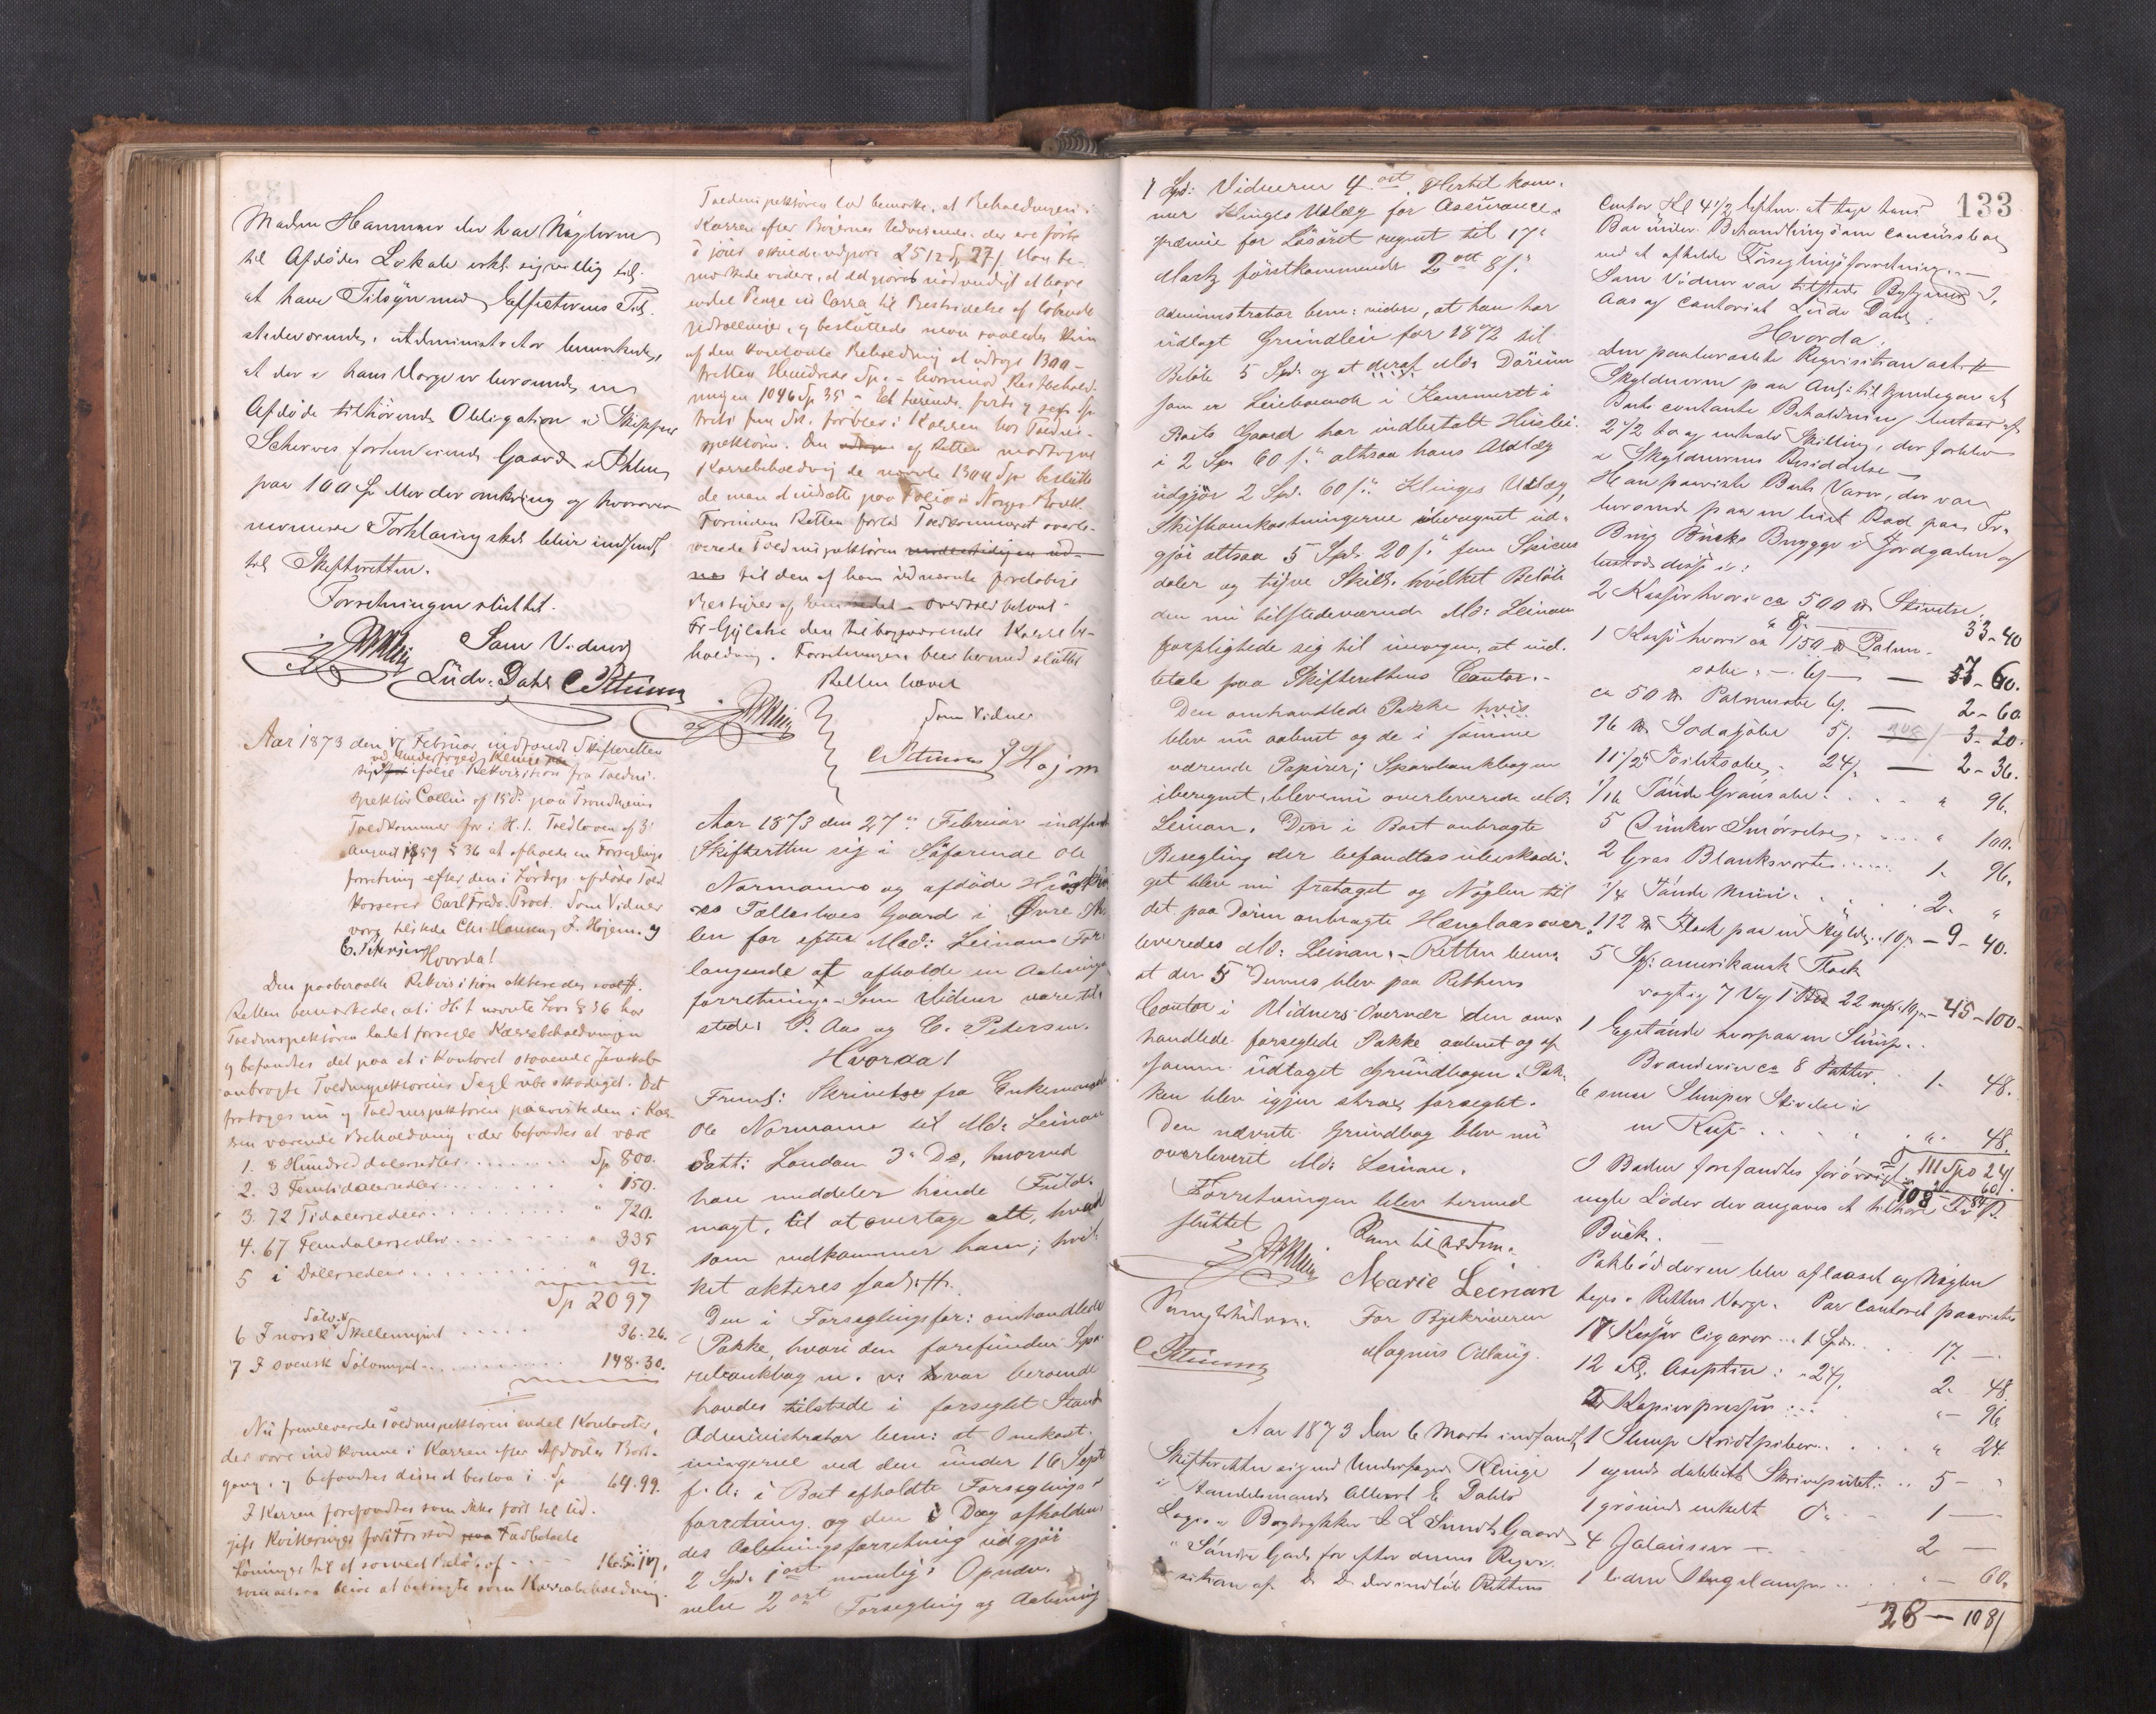 Madm Hammer der har Nøglerne
til Afdødes Lokale erkl. sig villig til
at have Tilsyn med Effecternes Til-
stedeværende. Administrator bemærkede,
at der i hans Værge er beroende en
Afdøde tilhørende Obligation i Skipper
Scherves Gaard i Ihlen
paa 100 Sp Mor der omkring og hvorover
nærmere Forklaring skal blive indsendt
til Skifteretten.
Forretningen sluttet.
Som Vidner
Ludv. Dahl C Petersen
Aar 1873 den 17 Februar indfandt Skifteretten
ved Underfoged Klinge
sig ifølge Rekvisition fra Toldin-
spektør Collin af 15 ds. paa Trondhjems
Toldkammer for i H. t. Toldloven af 3
August 1859 § 36 at afholde en Forseglings
forretning efter den i Lørdags afdøde Told
kasserer Carl Fredr. Proet. Som Vidner
vare tilstede Chr Hansen, J. Højem og
C. Petersen
Hvorda!
Den paaberaabte Rekvisition akteredes saal.
Retten bemærkede, at i H. t. nævnte Lovs § 36 har
Toldinspektøren ladet forsegle Kassebeholdningen
og befandtes det paa et i Kontoret staaende Jernskab
anbragte Toldinspektørens Segl ubeskadiget. Det
fratoges nu og Toldinspektøren paaviste den i Kas-
sen værende Beholdning der befandtes at være
1. 8 Hundreddalersedler ........ Sp 800.
2. 3 Femtidalersedler ........ " 150.
3. 72 Tidalersedler ........ " 720.
4. 67 Femdalersedler ........ " 335
5 i Dalersedler ........ " 92.
Sp 2097
6 I norsk Sølv & Skillemynt ..... 36. 26.
7 I svensk Sølvmynt ........ 148. 30.
Nu fremleverede Toldinspektøren endel Kontanter,
der vare indkomne i Kassen efter Afdødes Bort-
gang, og befandtes disse at bestaa i Sp 64. 99.
I Kassen forefandtes som ikke ført til Ud-
gift Kvitteringer for udbetalte
Lønninger til et samlet Beløb af - 165. 117,
som altsaa blive at betragte som Kassabeholdning.
Toldinspektøren lod bemærke, at Beholdningen i
Kassen efter Bøgernes Udvisende, der ere førte
à jour skulde udgøre 2512 Sp 27 s. Han be-
mærkede videre, at det gjøres nødvendigt at have
endel Penge in Cassa til Bestridelse af løbende
Udtællinger, og besluttede man saaledes kun
af den Beholdning at udtage 1300 -
tretten Hundrede Sp. - hvormod Restbehold-
ningen 1046 Sp 35 - Et tusende, førti og sex Sp
treti fem Sk. forblev i Kassen hos Toldin-
spektøren. Den af Retten modtagne
Kassebeholdning de nævnte 1300 Spr beslutte-
de man at indsætte paa Folio i Norges Bank.
Forinden Retten forlod Toldkammeret overle-
verede Toldinspektøren
til den af ham udnævnte foreløbige
Bestyrer af Overtoldbetjent
Fr. Gjelstre den tilbageværende Kassebe-
holdning. Forretningen blev hermed sluttet
Retten hævet
Som Vidner
C Petersen J Højem
Aar 1873 den 27de Februar indfandt
Skifteretten sig i Søfarende Ole
Normanns og afdøde Hustru-
es Fællesboes Gaard i Øvre Ih-
len for efter Mad: Leinans For-
langende at afholde en Aabnings
forretning. Som Vidner vare til-
stede: P. Aas og C. Petersen.
Hvorda!
Freml: Skrivelse fra Enkemanden
Ole Normann til Md: Leinan
datt: London 3 Ds, hvorved
han meddeler hende Fuld-
magt, til at overtage alt, hvad
som vedkommer ham; hvil-
ket akteres saal. #.
Den i Forseglingsfor: omhandlede
Pakke, hvori den forefundne Spa-
rebankbog m. v: var beroende
havdes tilstede i forseglet Stand
Administrator bem: at Omkost-
ningerne ved den under 16 Sept
f. A. i Boet afholdte Forseglings-
forretning og den i Dag afholden-
des Aabningsforretning udgjør
2 Spd. 1 ort nemlig: Opnæv-
nelse 2 ort Forsegling og Aabning
133
1 Spd: Vidnerne 4 ort. Hertil kom-
mer Klinges Udlæg for Assurance-
præmie for Løsøret regnet til 17de
Marts førstkommende 2 ort 8 s."
Administrator bem: videre, at han har
udlagt Grundleie for 1872 til
Beløb 5 Spd: og at deraf Md: Dorum
som er Leieboende i Kammeret i
Boets Gaard har indbetalt Husleie
i 2 Spd 60 s." altsaa hans Udlæg
udgjør 2 Spd: 60 s." Klinges Udlæg,
Skifteomkostningerne iberegnet ud-
gjør altsaa 5 Spd: 20 s." fem Specie
daler og tyve Skill. hvilket Beløb
den nu tilstedeværende Md: Leinan
forpligtede sig til imorgen, at ind-
betale paa Skifterettens Contor. -
Den omhandlede Pakke hvis
blev nu aabnet og de i samme
værende Papirer; Sparebankbogen
iberegnet, bleve nu overleverede Md:
Leinan. Den i Boet anbragte
Besegling der befandtes ubeskadi-
get blev nu frataget og Nøglen til
det paa Døren anbragte Hænglaas over-
leveredes Md: Leinan. - Retten bem:
at den 5 Dennes blev paa Rettens
Contor i Vidners Overvær den om-
handlede forseglede Pakke aabnet og af
samme udtaget Grundbogen. Pak-
ken blev igjen strax forseglet.
Den nævnte Grundbog blev nu
overleveret Md: Leinan.
Forretningen blev hermed
sluttet
Marie Leinan
For Byskriveren
Magnus Odlaug.
C Petersen
Aar 1873 den 6 Marts indfandt
Skifteretten sig ved Underfoged Klinge
i Handelsmand Albert E Dahls
Logis i Bogtrykker L Sundts Gaard
i Søndre Gade for efter dennes Reqvi-
sition af D. D. der indløb Rettens
Contor Kl 4 1/2 Efterm. at tage hans
Bo under Behandling som Concursbo
ved at afholde Forseglingsforretning. -
Som Vidner var tilstede
Aas og Cantorist Ludv Dahl.
Hvorda:
Den paaberaabte Reqvisition act. #
Skyldneren paa Anl: tilkjendegav at
Boets contante Beholdning bestaar af
2 1/2 to og enhalv Skilling, der forblev
i Skyldnerens Besiddelse -
Han paaviste Boets Varer, der var
beroende paa en leiet Bod paa Fr.
Bucks Brygge i Fjordgaden og
bestod disse i:
2 Kasser hvori ca 500 ℔ Stivelse
" 8 s. 33-40
1 Kasse hvori ca 1/50 ℔ Palme-
sæbe - 6 s — 7-60.
ca 50 ℔ Palmesæbe 6 s. — 2-60
76 ℔ Sodasæbe 5 s. 3-20.
11 1/2 ℔ Toiletsæbe 24 s. — 2-36.
1/16 Tønde Grønsæbe " 96.
5 Dunker Smørrelse " 100.
2 Gros Blanksværte ..... 1. 96.
1/4 Tønde 2. "
112 ℔ Flesk 10 s. - 9-40.
5 Sp: amerikansk Flesk
vægtig 7 Vog 1 22 mrk. 10 s. - 45-100-
1 Egetønde hvorpaa en Slump
Brændevin ca 8 Potter. 1. 48.
6 smaa Slumper Stivelse i
en Kasse " 48.
111 Spd 24 s
I Boden forefandtes forøvrigt
nogle Løsøre der angaves at tilhøre Fr P.
Buck.
Pakboddøren blev aflaaset og Nøglen
toges i Rettens Værge. Paa Contoret paavistes
17 Kasser Cigarer ... 1 Spd... 17. —
12 Fl. Aseptin: a 24 s. 2. 48
2 Kopierpresser: ... " - 96
1 Slump Kridtpiber.. " 24.
1 egende dobbelt Skrivepulet: .. 5 - "
1 grønmalt enkelt do - - 1 —
4 Jalousier - 2 —
1 liden Slangelampe .. " - 60.
28 — 108 s